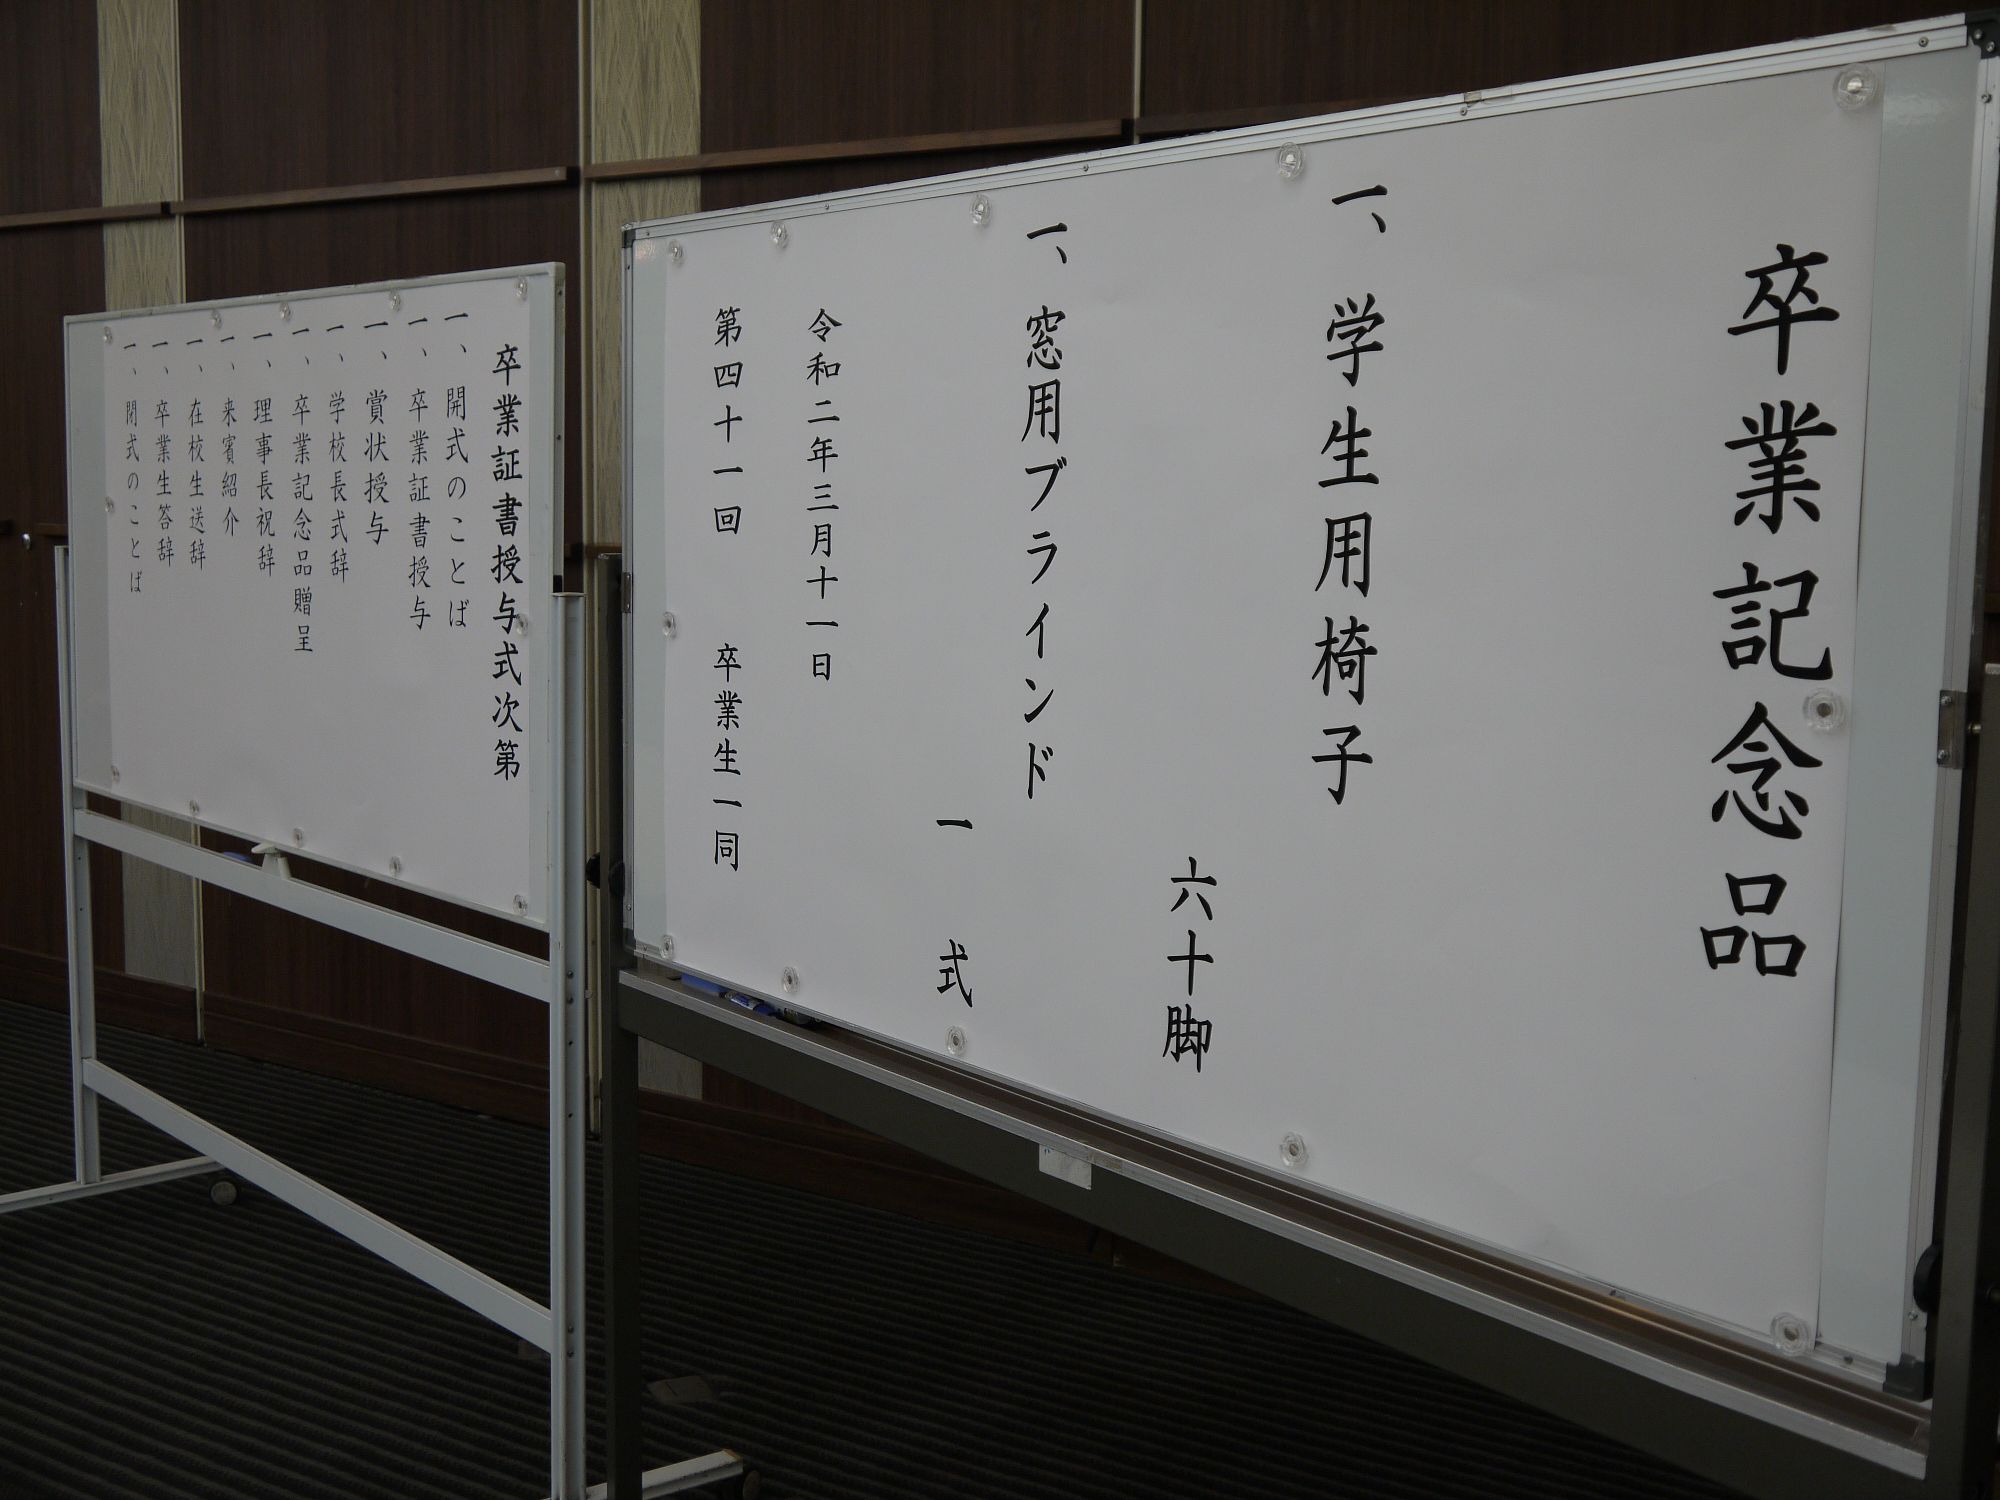 卒業記念品
一、学生用椅子
六十脚
一、窓用ブラインド
一式
令和二年三月十一日
第四十一回　卒業生一同
卒業証書授与式次第
一、開式のことば
一、卒業証書授与
一、賞状授与
一、学校長式辞
一、卒業記念品贈呈
一、理事長祝辞
一、来賓紹介
一、在校生送辞
一、卒業生答辞
一、閉式のことば